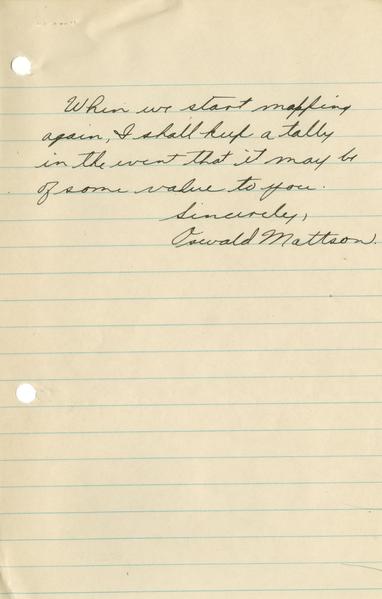 When we start mapping
again, I shall keep a tally
in the event that it may be
of some value to you.
Sincerely,
Oswald Mattson.